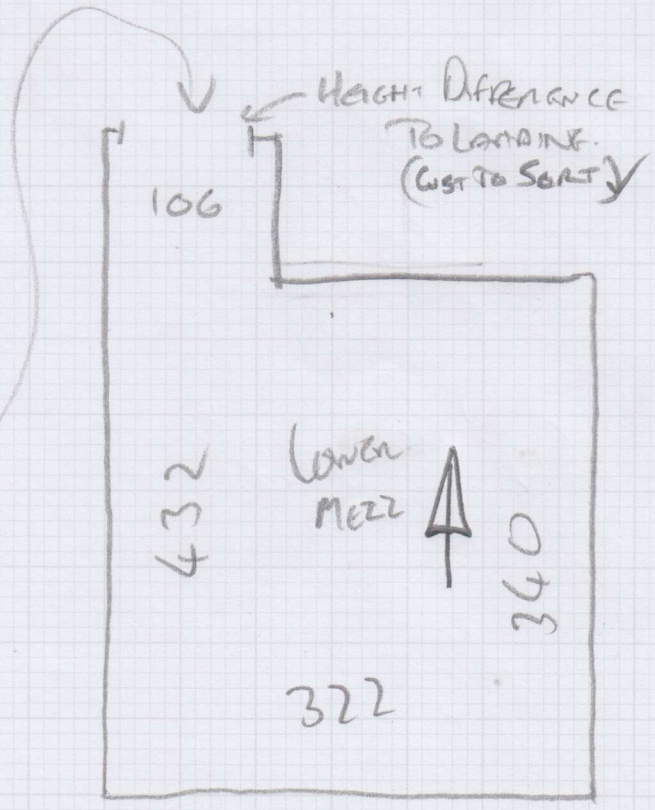 HEIGHT DIFFERENCE
TO LANDING.
(CUST TO SORT)
106
LOWER
MEZZ
432
340
322